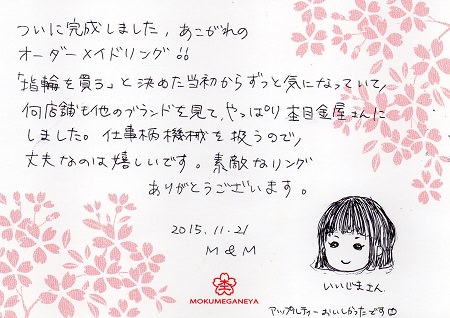 ついに完成しました, あこがれの
オーダーメイドリング!!
「指輪を買う」と決めた当初からずっと気になっていて,
何店舗も他のブランドを見て, やっぱり杢目金屋さんに
しました。仕事柄機械を扱うので,
丈夫なのは嬉しいです。素敵なリング
ありがとうございます。
2015.11.21
M & M
いいじまさん
MOKUMEGANEYA
アップルティーおいしかったです